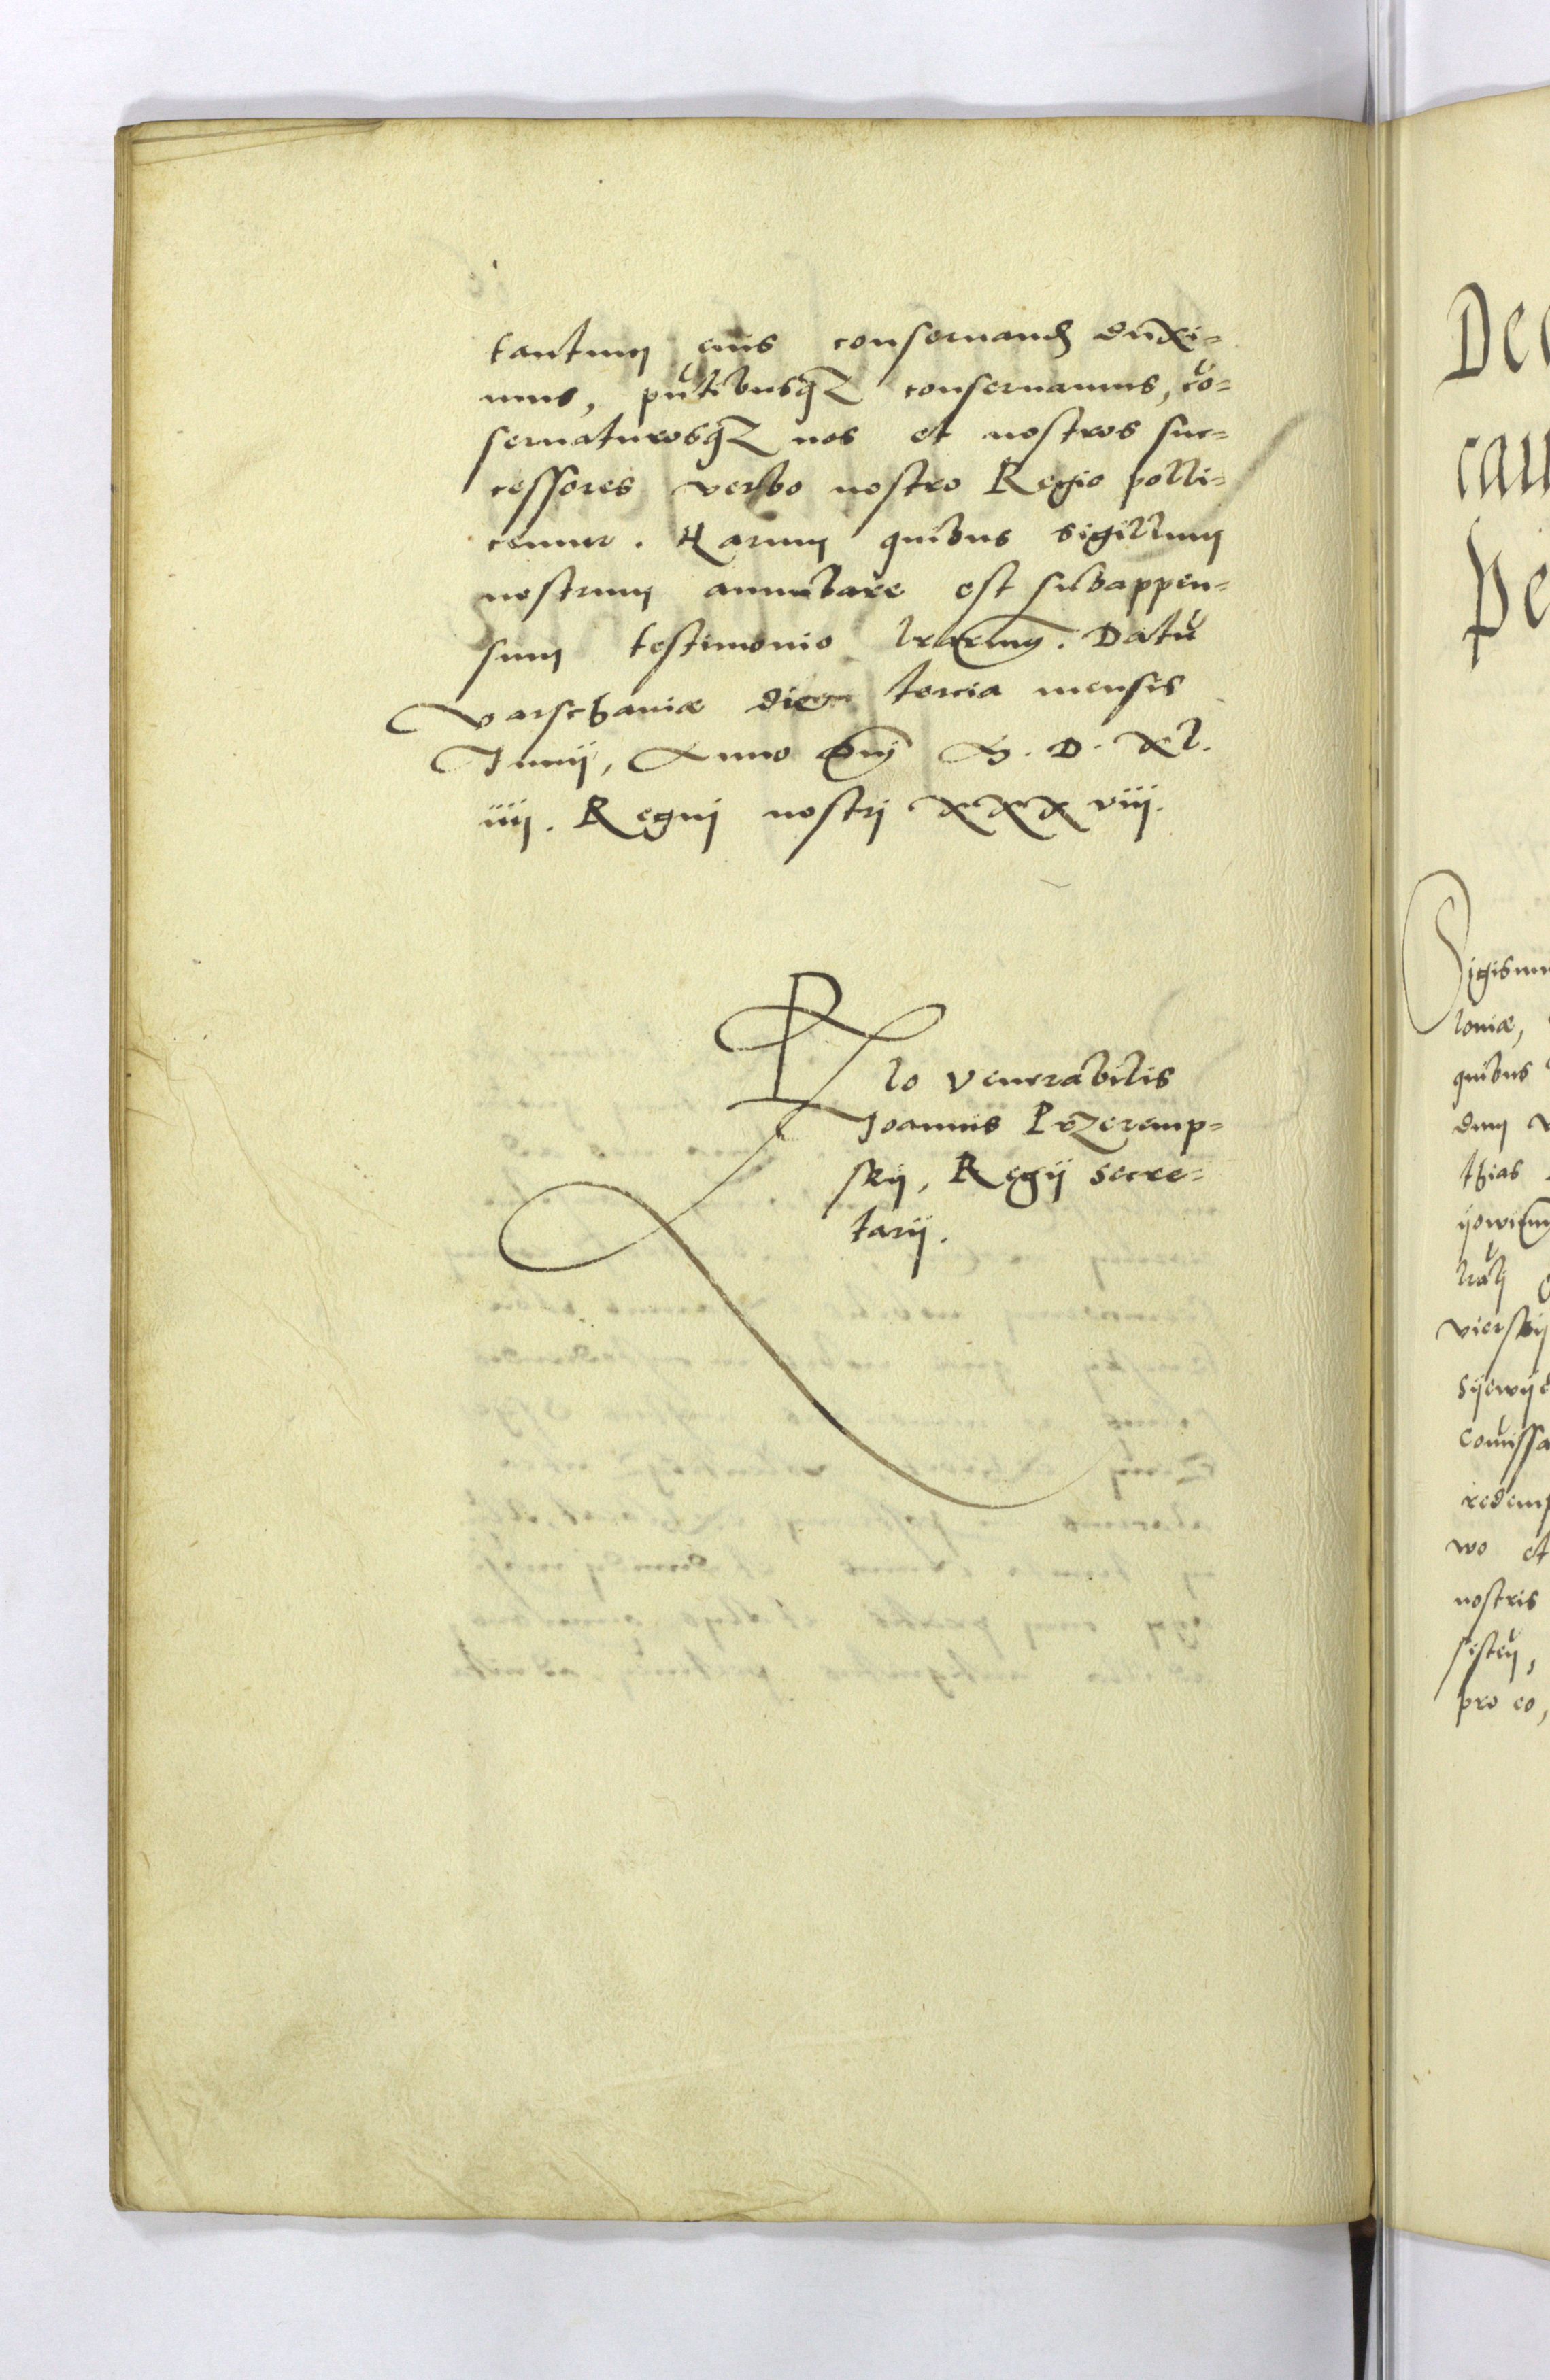 tantum eius conseruand duxi=
mus, pñtibusqꝫ conseruamus, cõ=
seruaturosqꝫ nos et nostros suc=
cessores verbo nostro Regio polli=
cemur. Harum quibus sigillum
nostrum annulare est subappen=
sum testimonio lrarum. Datũ
Varschauiæ die tercia mensis
Junij, Anno Dnj M. D. Xl.
iiij. Regnj nostrj XXX viij.
Rlo Venerabilis
Joannis Przeremp=
skij, Regij Secre=
tarij.
De
cau
Pe
Sigismu
loniæ,
quibus
dum
thias
lralj
vierskij
redemp
wo et
nostris
pro eo,